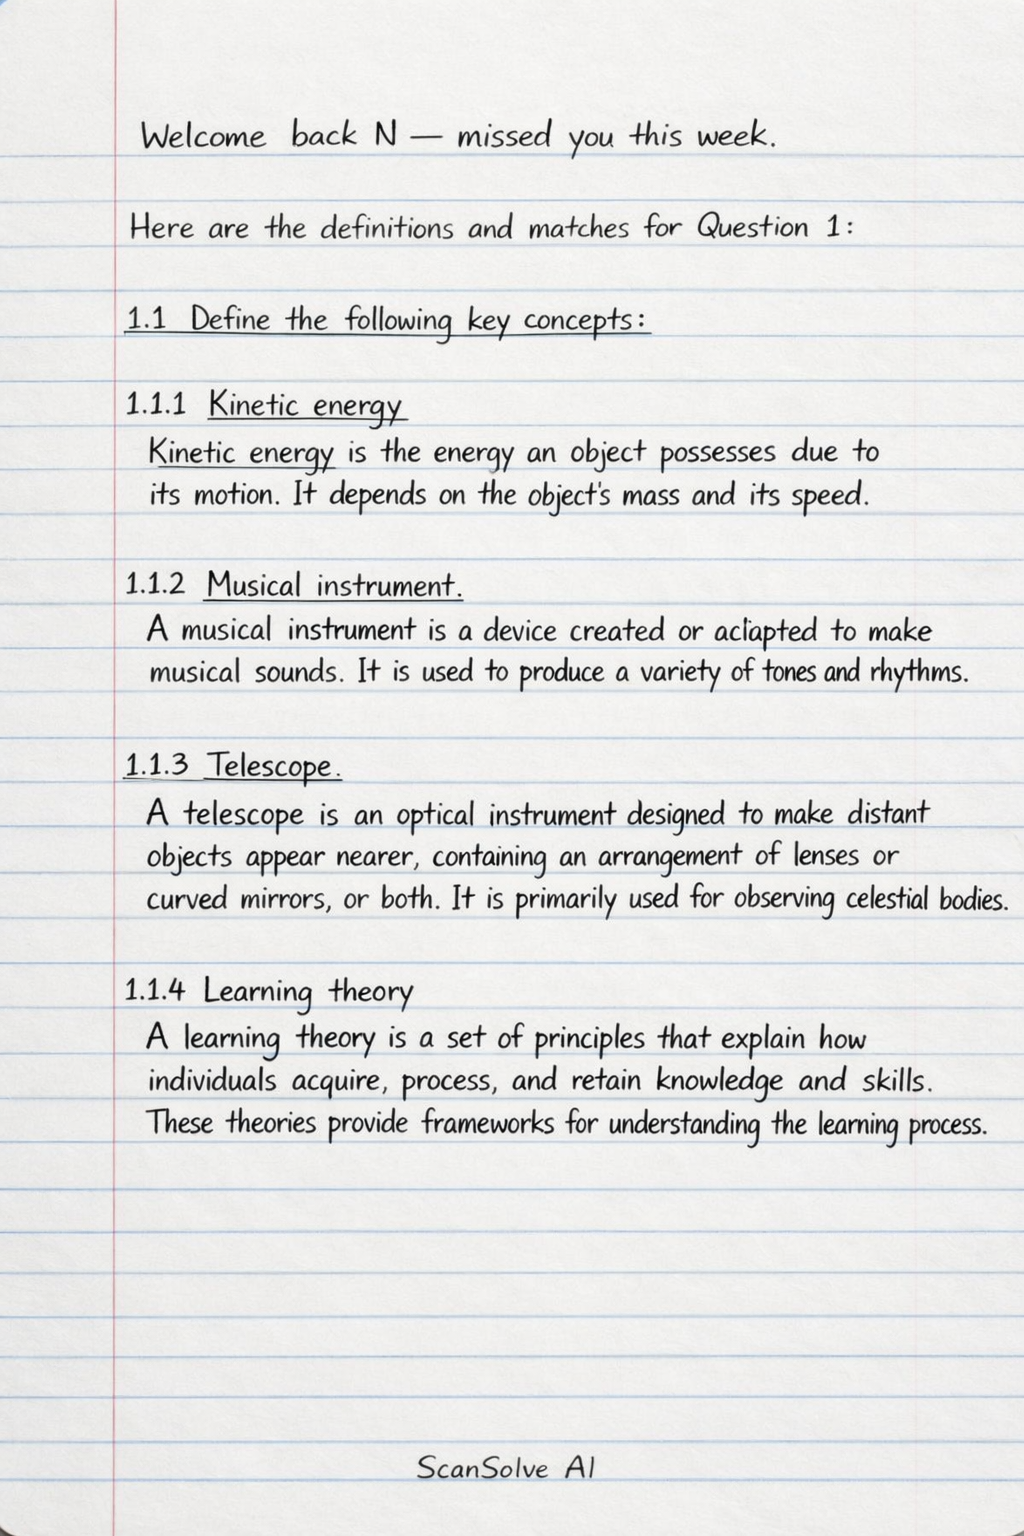 Welcome back N — missed you this week.
Here are the definitions and matches for Question 1:
1.1 Define the following key concepts:
1.1.1 Kinetic energy
Kinetic energy is the energy an object possesses due to
its motion. It depends on the object's mass and its speed.
1.1.2 Musical instrument.
A musical instrument is a device created or adapted to make
musical sounds. It is used to produce a variety of tones and rhythms.
1.1.3 Telescope.
A telescope is an optical instrument designed to make distant
objects appear nearer, containing an arrangement of lenses or
curved mirrors, or both. It is primarily used for observing celestial bodies.
1.1.4 Learning theory
A learning theory is a set of principles that explain how
individuals acquire, process, and retain knowledge and skills.
These theories provide frameworks for understanding the learning process.
ScanSolve AI